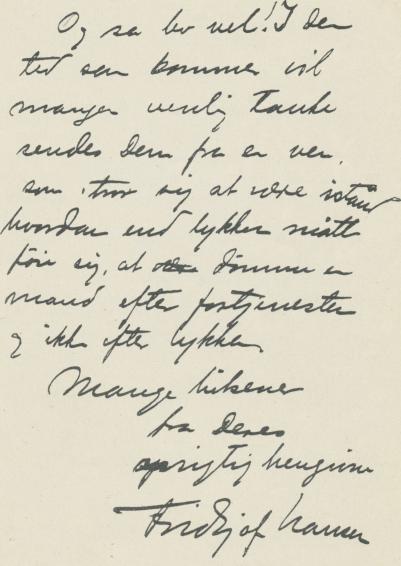 Og saa lev vel! I den
tid som kommer vil
mangen venlig tanke
sendes Dem fra en ven,
som tror sig at være istand
hvordan end lykken måtte
föie sig, at dömme en
mand efter fortjenesten
og ikke efter lykken.
Mange hilsener
fra Deres
oprigtig hengivne
Fridtjof Nansen